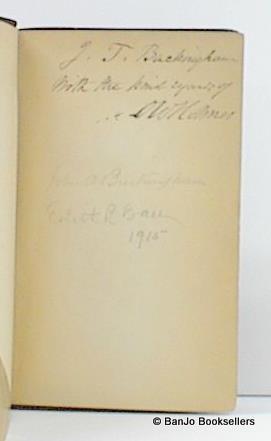 J. T. Buckingham
With the kind regards of
O W Holmes
John A Buckingham
Edith R Ball
1915
© BanJo Booksellers